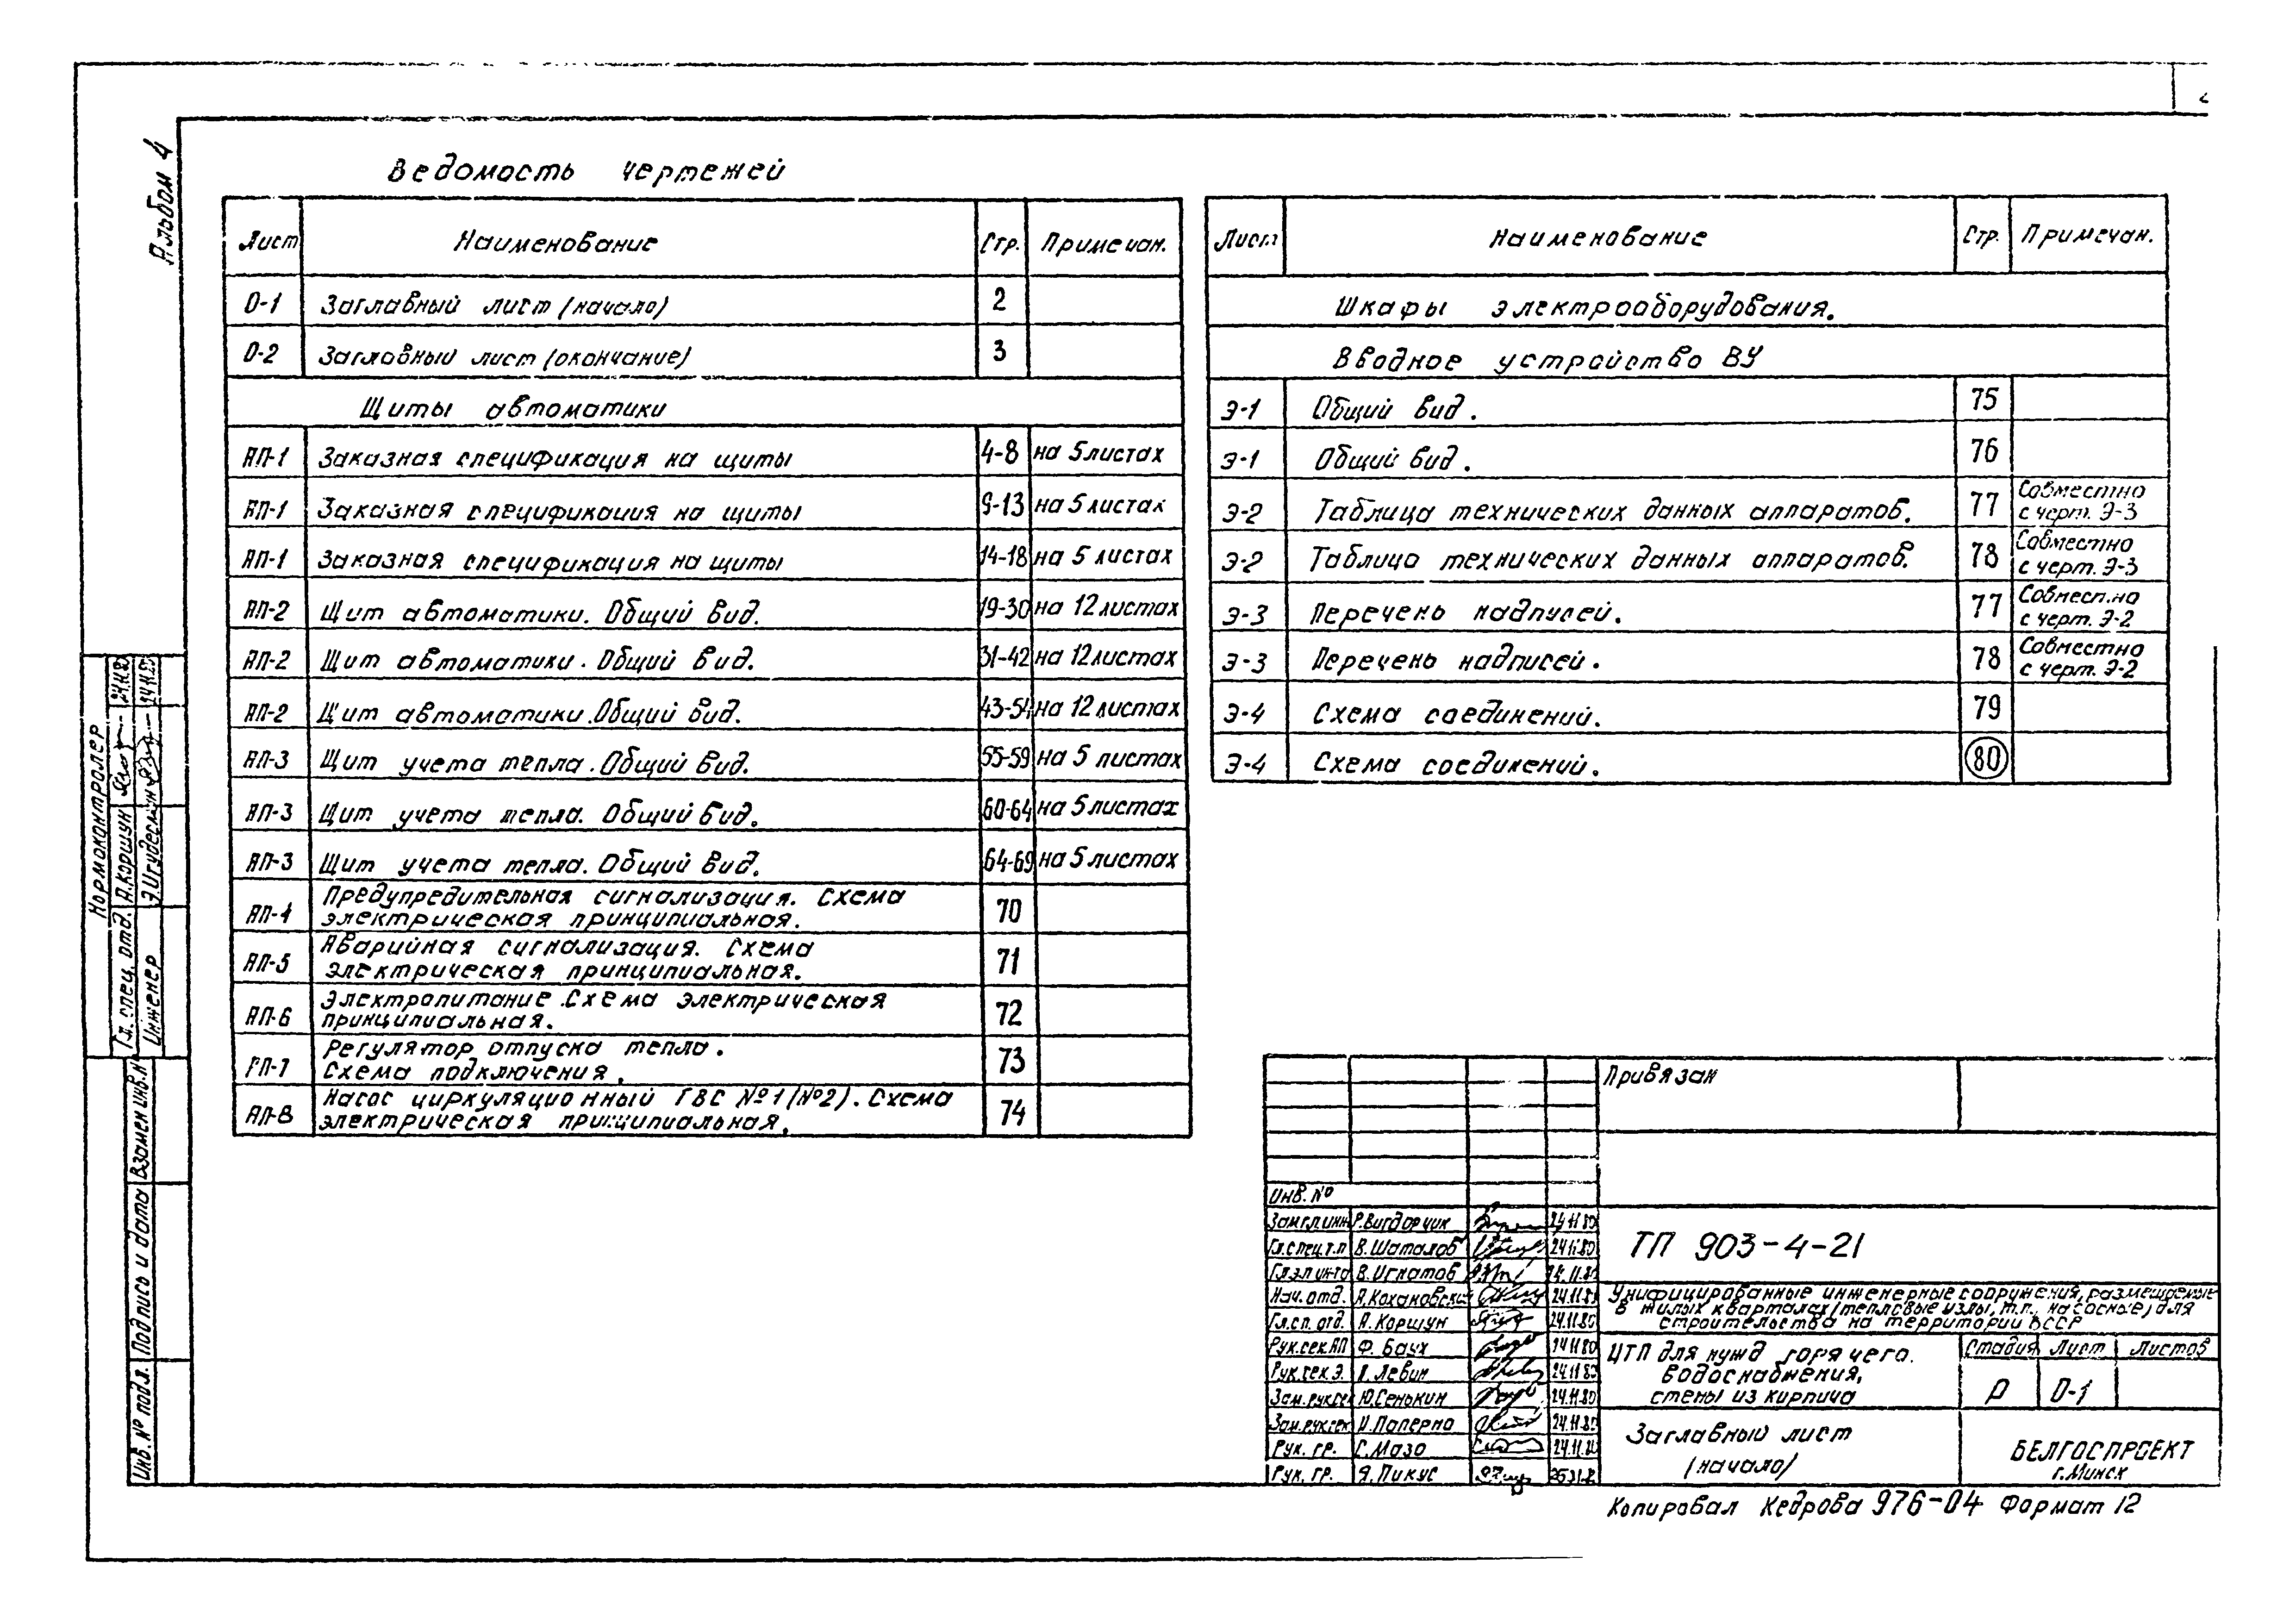 Альбом 4
Ведомость чертежей
Лист Наименование Стр. Примечан.
О-1 Заглавный лист (начало) 2
О-2 Заглавный лист (окончание) 3
Щиты автоматики
АП-1 Заказная спецификация на щиты 4-8 на 5 листах
АП-1 Заказная спецификация на щиты 9-13 на 5 листах
АП-1 Заказная спецификация на щиты 14-18 на 5 листах
АП-2 Щит автоматики. Общий вид. 19-30 на 12 листах
АП-2 Щит автоматики. Общий вид. 31-42 на 12 листах
АП-2 Щит автоматики. Общий вид. 43-54 на 12 листах
АП-3 Щит учета тепла. Общий вид. 55-59 на 5 листах
АП-3 Щит учета тепла. Общий вид. 60-64 на 5 листах
АП-3 Щит учета тепла. Общий вид. 64-69 на 5 листах
Предупредительная сигнализация. Схема
АП-4 электрическая принципиальная. 70
Аварийная сигнализация. Схема
АП-5 электрическая принципиальная. 71
Электропитание. Схема электрическая
АП-6 принципиальная. 72
Регулятор отпуска тепла.
АП-7 Схема подключения. 73
Насос циркуляционный ГВС №1 (№2). Схема
АП-8 электрическая принципиальная. 74
Лист Наименование Стр. Примечан.
Шкафы электрооборудования.
Вводное устройство ВУ
Э-1 Общий вид. 75
Э-1 Общий вид. 76
Э-2 Таблица технических данных аппаратов. 77 Совместно
с черт. Э-3
Э-2 Таблица технических данных аппаратов. 78 Совместно
с черт. Э-3
Э-3 Перечень надписей. 77 Совместно
с черт. Э-2
Э-3 Перечень надписей. 78 Совместно
с черт. Э-2
Э-4 Схема соединений. 79
Э-4 Схема соединений. 80
Нормоконтролер
Гл. спец. отд. А.Коршун
Инженер
Взамен инв.№
Подпись и дата
Инв. № подл.
Привязан
Инв. №
Зам.гл.инж Р.Вигдорчик 24.11.80
Гл.спец.т.п В.Шаталов 24.11.80
В.Игнатов
Нач.отд. А.Кохановский 24.11.80
Гл.сп.отд. А.Коршун 24.11.80
Рук.сек.АП Ф.Баух 24.11.80
Рук.сек.Э. Левин 24.11.80
Зам.рук.сек Ю.Сенькин 24.11.80
Зам.рук.сек И.Паперно 24.11.80
Рук. гр. С.Мазо 24.11.80
Рук. гр. Я.Пикус
ТП 903-4-21
Унифицированные инженерные сооружения, размещаемые
в жилых кварталах (тепловые узлы, т.п., насосные) для
строительства на территории БССР
ЦТП для нужд горячего
водоснабжения,
стены из кирпича
Стадия Лист Листов
Р О-1
Заглавный лист
(начало)
БЕЛГОСПРОЕКТ
г.Минск
Копировал Кедрова 976-04 Формат 12